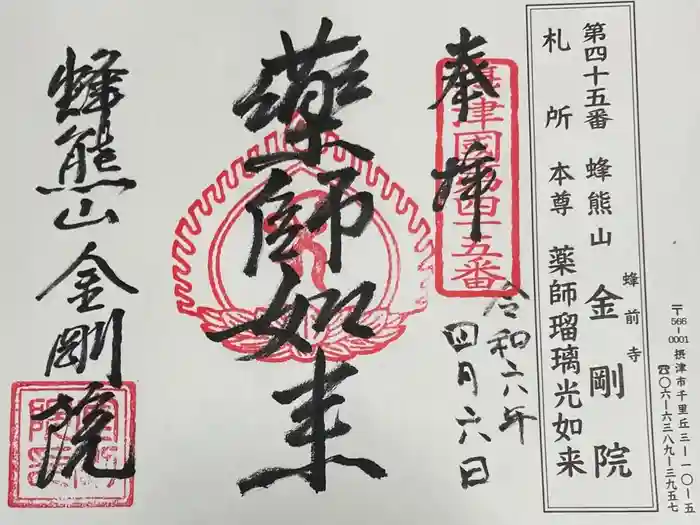 第四十五番 蜂熊山 金剛院
蜂前寺
札所 本尊 薬師瑠璃光如来
〒566-0001 摂津市千里丘三ー一〇ー五
☎〇六ー六三八九ー三九五七
奉拝
摂津國第四十五番
令和六年
四月六日
薬師如来
蜂熊山 金剛院